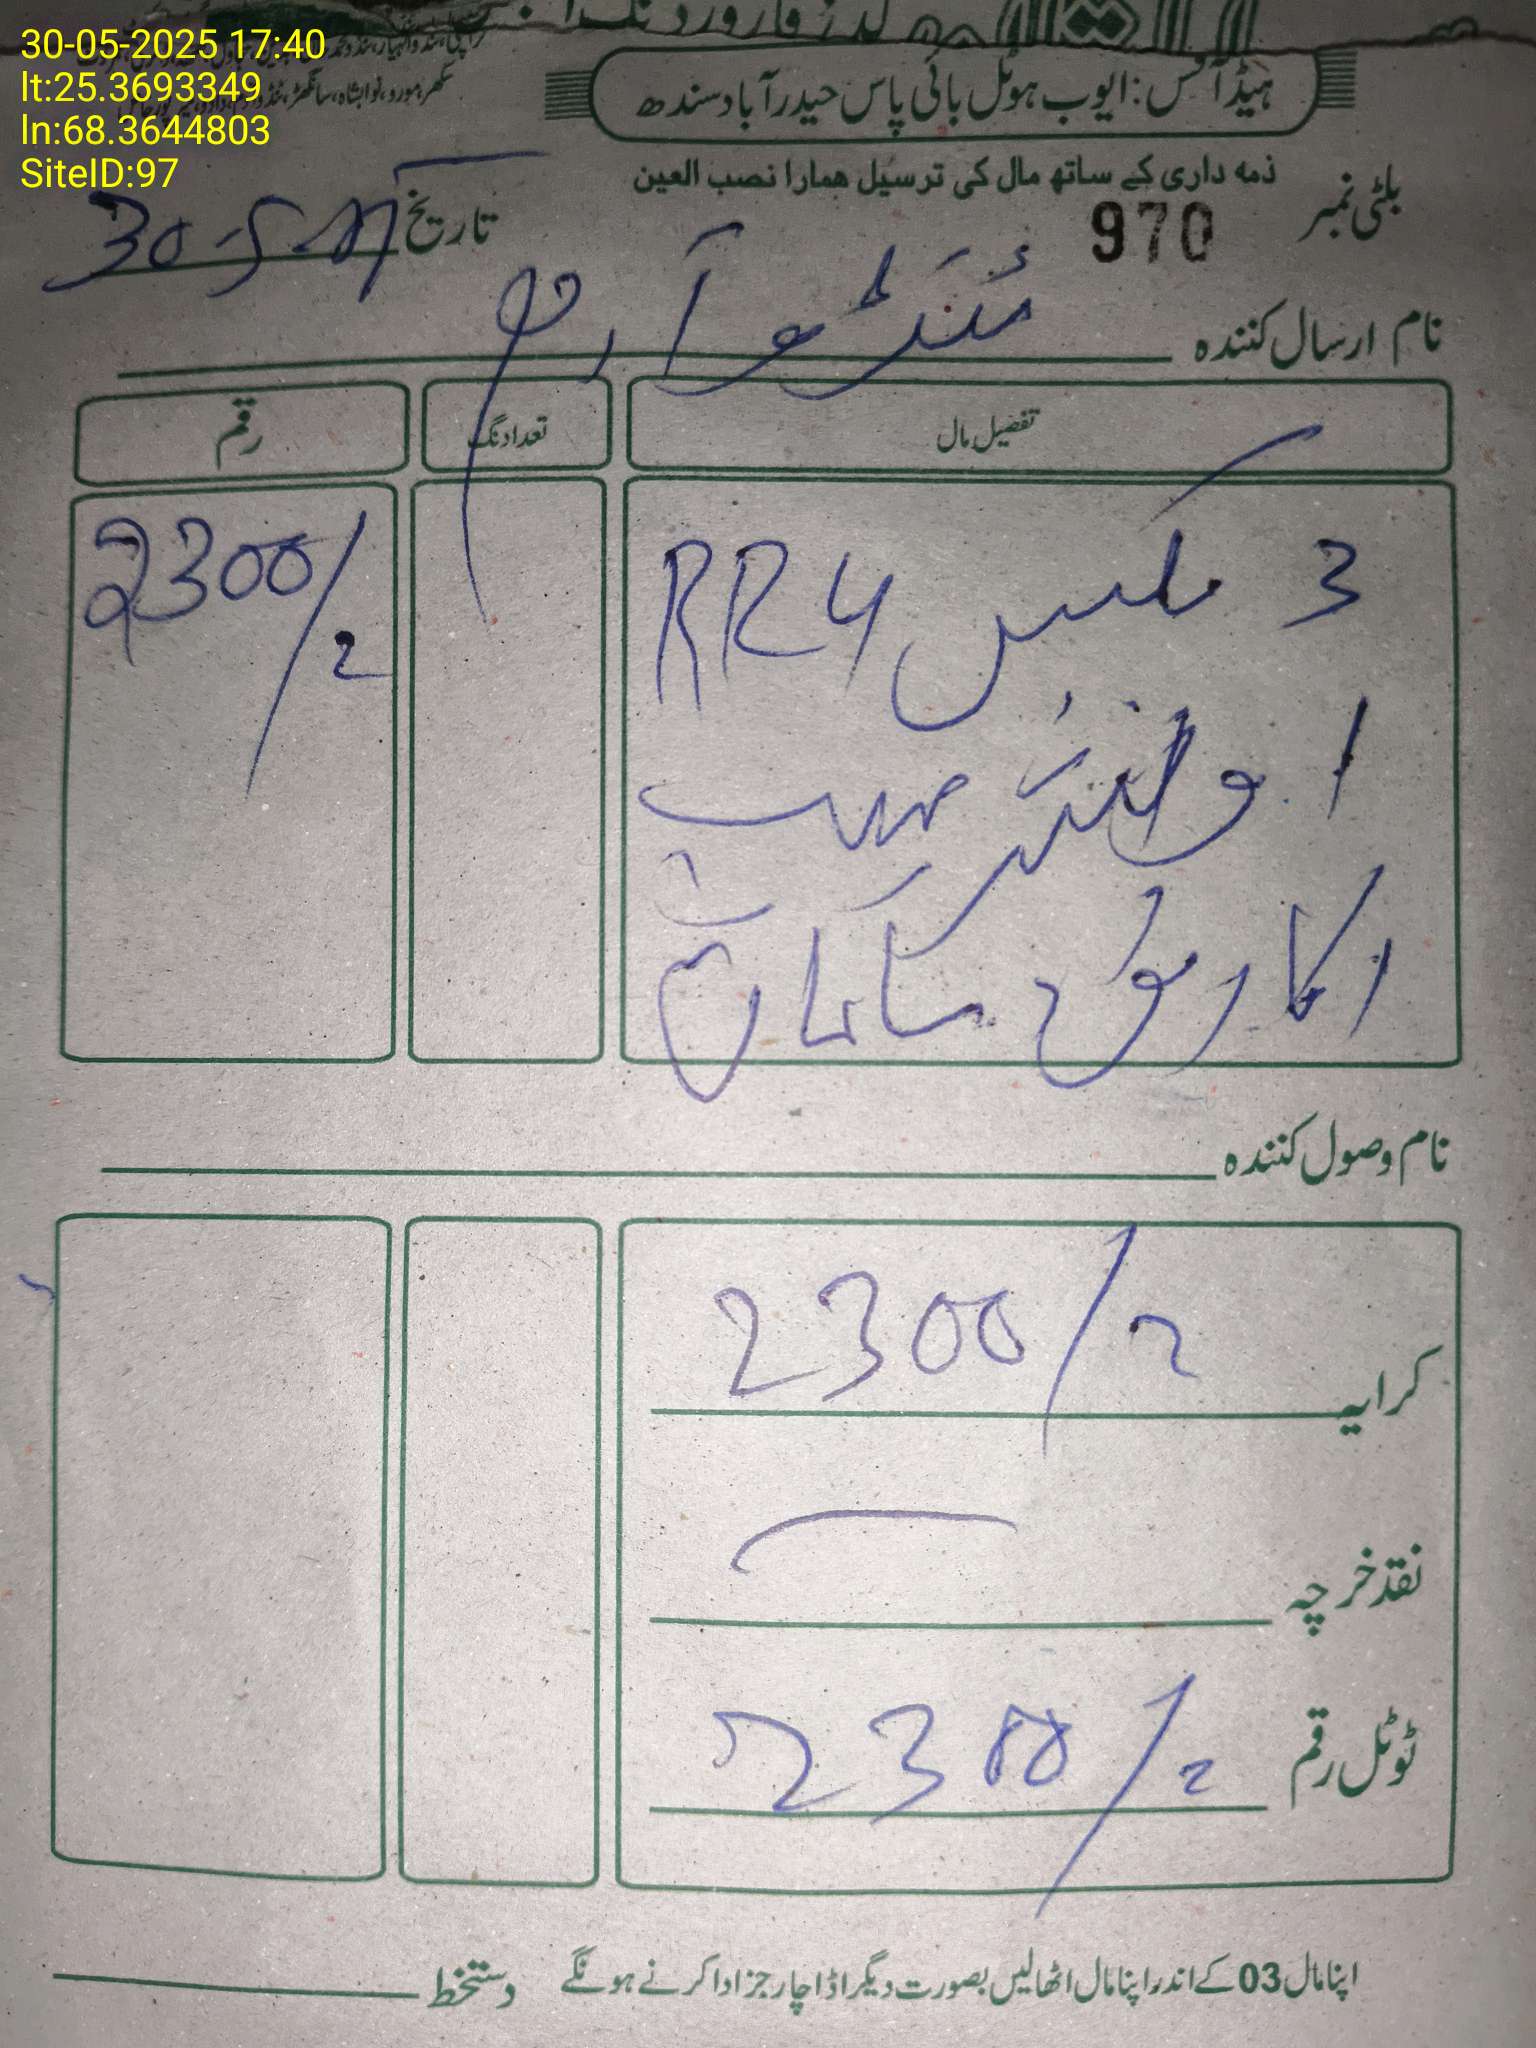 30-05-2025 17:40
lt:25.3693349
ln:68.3644803
SiteID:97
ہیڈ آفس: ایوب ہوٹل بائی پاس حیدرآباد سندھ
ذمہ داری کے ساتھ مال کی ترسیل ھمارا نصب العین
بلٹی نمبر 970
تاریخ 30-5-
نام ارسال کنندہ ٹنڈو آدم
تفصیل مال تعداد نگ رقم
3 مکس RR4 2300/2
1
1 کارٹن سامان
نام وصول کنندہ
کرایہ 2300/2
نقد خرچہ
ٹوٹل رقم 2300/2
اپنا مال 03 کے اندر اپنا مال اٹھالیں بصورت دیگر اڈا چارجز ادا کرنے ہونگے دستخط